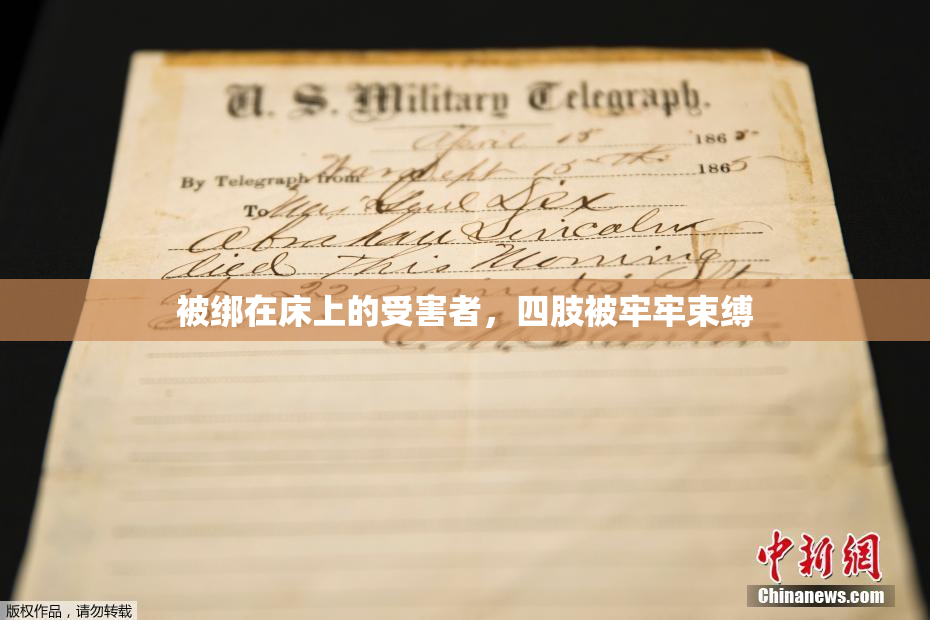 U. S. Military Telegraph.
April 15 1865
By Telegraph from War Dept 15th 1865
To Maj Genl Dix
Abraham Lincoln
died This Morning
at 22 minutes after
被绑在床上的受害者，四肢被牢牢束缚
E. M. Stanton
中新網
Chinanews.com
版权作品，请勿转载